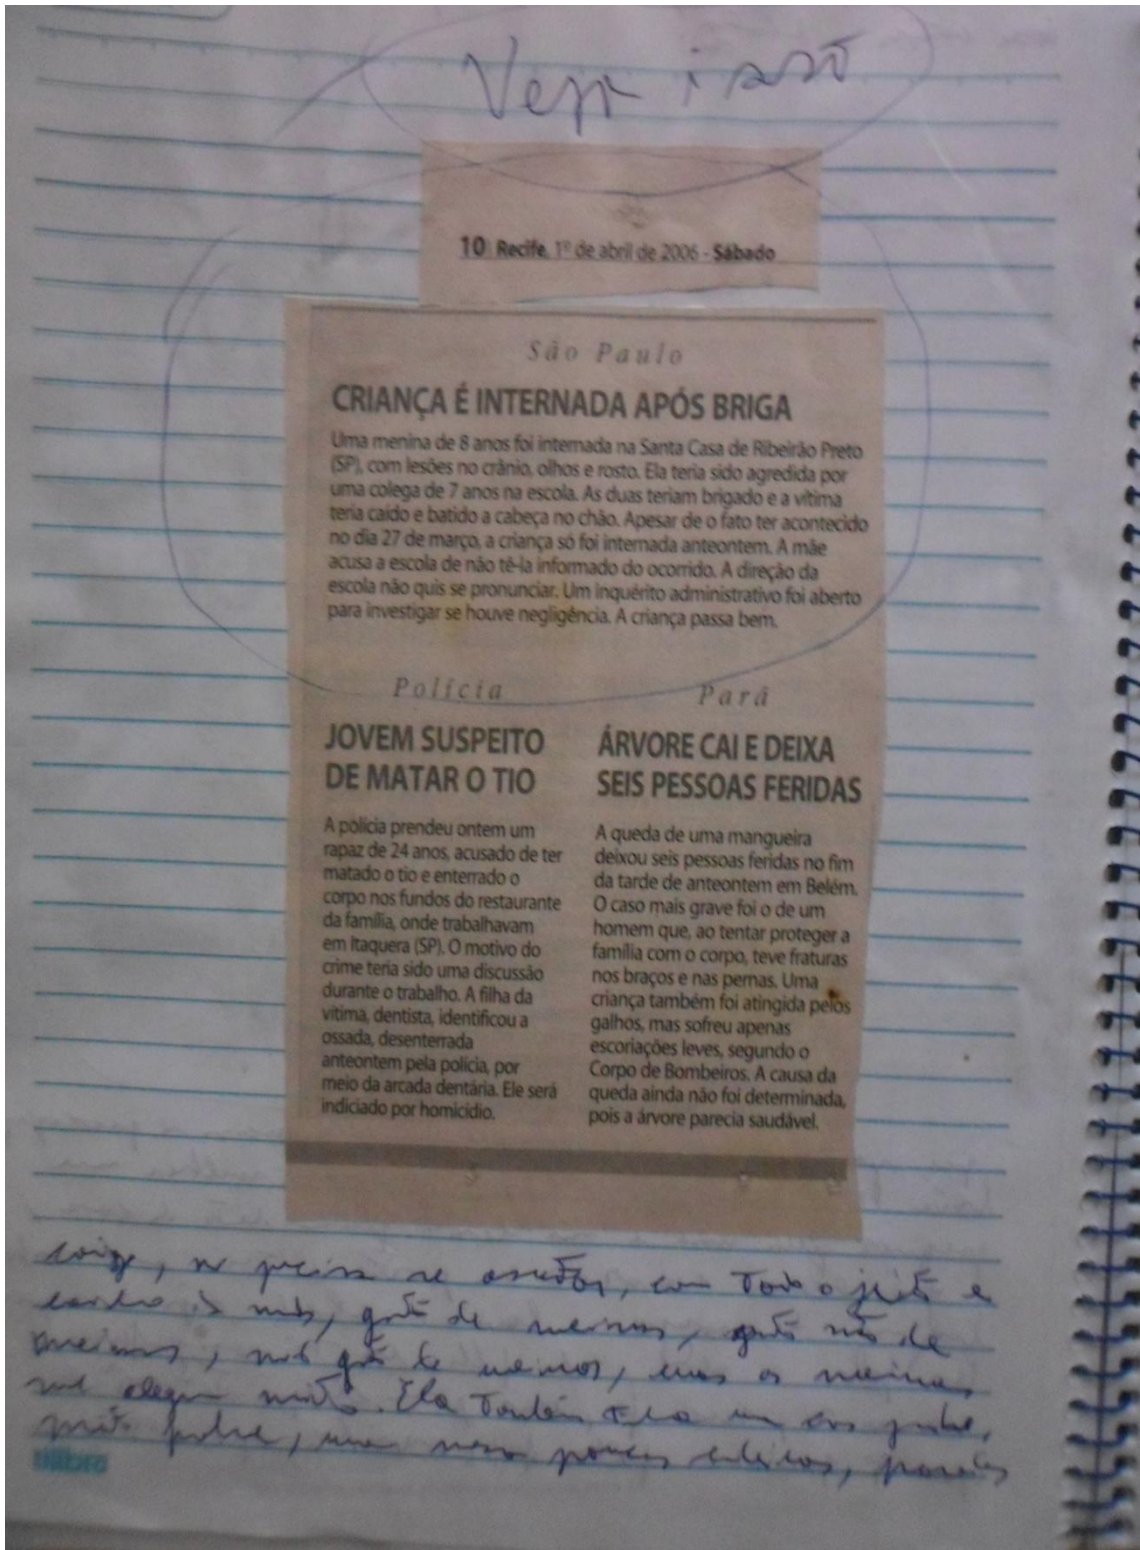 Veja isso
10 Recife, 1º de abril de 2006 - Sábado
São Paulo
CRIANÇA É INTERNADA APÓS BRIGA
Uma menina de 8 anos foi internada na Santa Casa de Ribeirão Preto
(SP), com lesões no crânio, olhos e rosto. Ela teria sido agredida por
uma colega de 7 anos na escola. As duas teriam brigado e a vítima
teria caído e batido a cabeça no chão. Apesar de o fato ter acontecido
no dia 27 de março, a criança só foi internada anteontem. A mãe
acusa a escola de não tê-la informado do ocorrido. A direção da
escola não quis se pronunciar. Um inquérito administrativo foi aberto
para investigar se houve negligência. A criança passa bem.
Polícia
JOVEM SUSPEITO
DE MATAR O TIO
A polícia prendeu ontem um
rapaz de 24 anos, acusado de ter
matado o tio e enterrado o
corpo nos fundos do restaurante
da família, onde trabalhavam
em Itaquera (SP). O motivo do
crime teria sido uma discussão
durante o trabalho. A filha da
vítima, dentista, identificou a
ossada, desenterrada
anteontem pela polícia, por
meio da arcada dentária. Ele será
indiciado por homicídio.
Pará
ÁRVORE CAI E DEIXA
SEIS PESSOAS FERIDAS
A queda de uma mangueira
deixou seis pessoas feridas no fim
da tarde de anteontem em Belém.
O caso mais grave foi o de um
homem que, ao tentar proteger a
família com o corpo, teve fraturas
nos braços e nas pernas. Uma
criança também foi atingida pelos
galhos, mas sofreu apenas
escoriações leves, segundo o
Corpo de Bombeiros. A causa da
queda ainda não foi determinada,
pois a árvore parecia saudável.
com todo o jeito e
de
mas os
Ela
tilibra